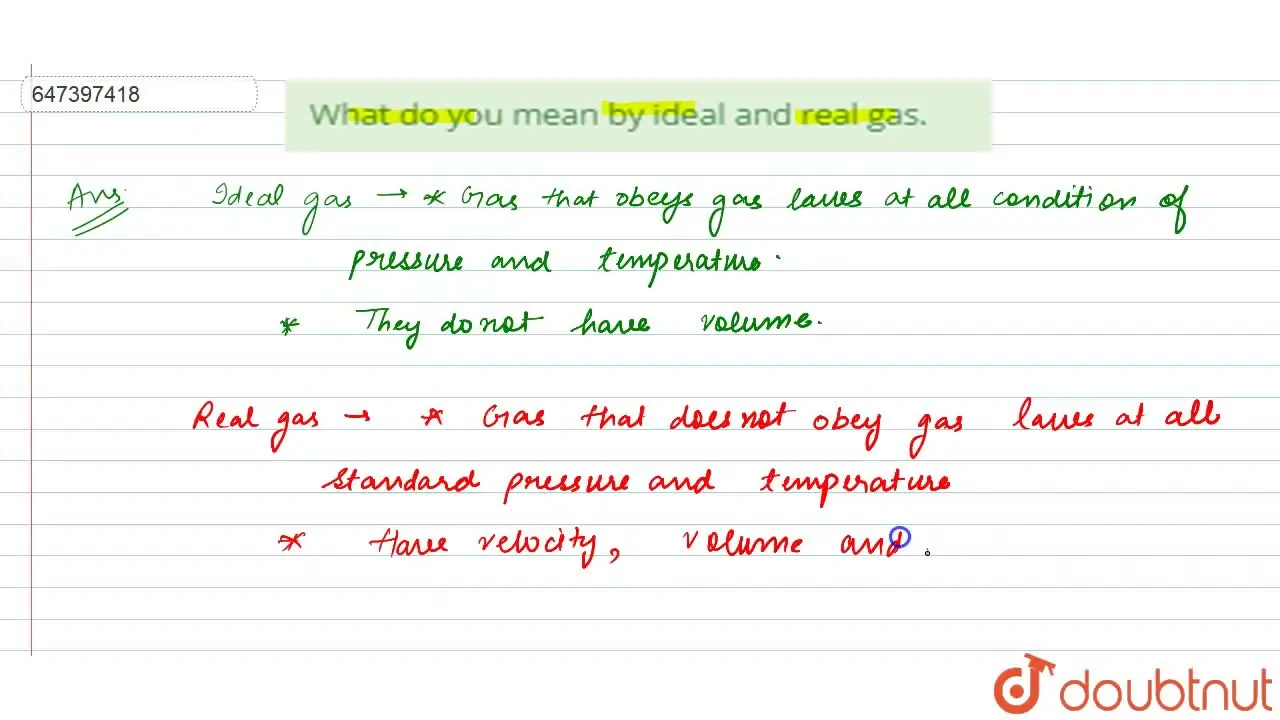 647397418
What do you mean by ideal and real gas.
Ans: Ideal gas → * Gas that obeys gas laws at all condition of
pressure and temperature.
* They do not have volume.
Real gas → * Gas that does not obey gas laws at all
standard pressure and temperature
* Have velocity, volume and
doubtnut